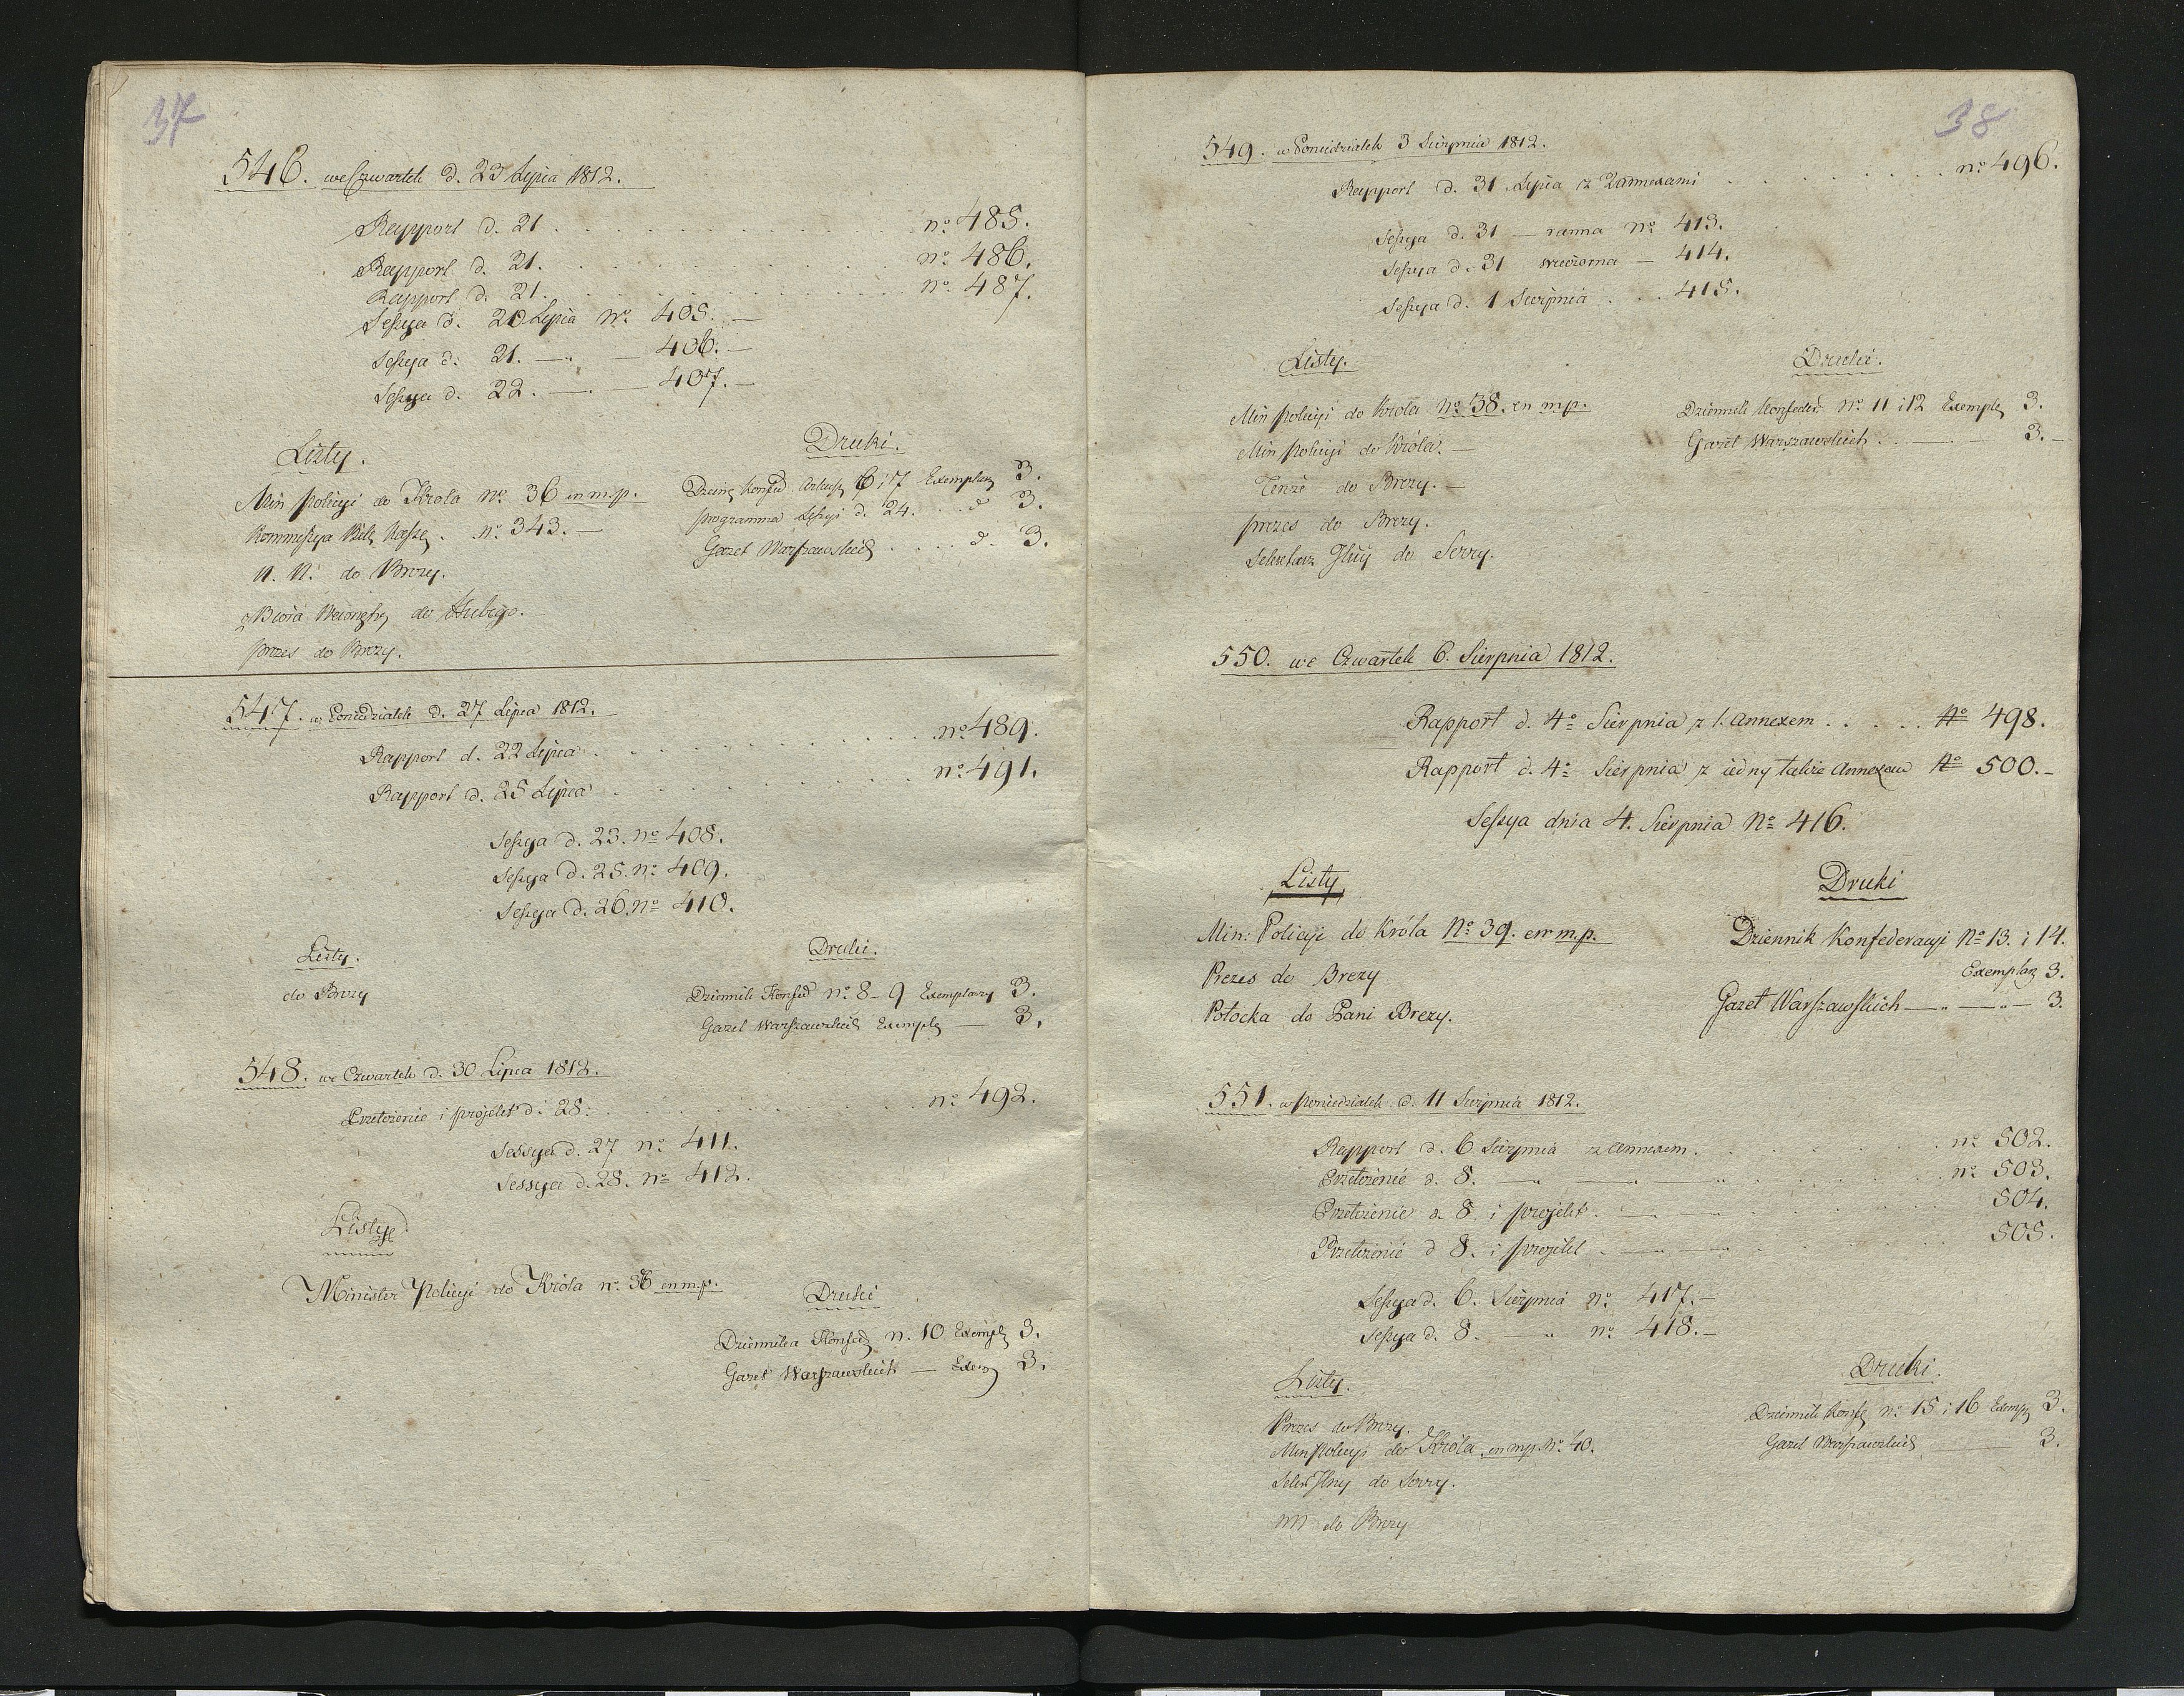 37
546. we Czwartek d. 23 Lipca 1812.
Rapport d. 21 . . . . . . . . . . . no 485.
Rapport d. 21. . . . . . . . . . . no 486.
Rapport d. 21. . . . . . . . . . . no 487.
Sessya d. 20 Lipca No 405. —
Sessya d. 21. —„ — 406. —
Sessya d. 22. — — 407. —
Listy.
Min Policyi do Krola No 36 en m.p.
Kommissya . no 343. —
N. N. do Brezy.
z Biora do
Prezes do Brezy.
Druki.
Konfed 6 i 7 Exemplarz 3.
programma Sessyi d. 24. . . d 3.
Gazet Warszawskich . . . . d. 3.
547. w Poniedziałek d. 27 Lipca 1812.
Rapport d. 22 Lipca . . . . . . . . . . no 489.
Rapport d. 25 Lipca . . . . . . . . . no 491.
Sessya d. 23. no 408.
Sessya d. 25. no 409.
Sessya d. 26. no 410.
Listy.
do Brezy
Druki.
Dziennik Konfed no 8-9 Exemplarzy 3.
Gazet Warszawskich Exempl — 3.
548. we Czwartek d. 30 Lipca 1812.
Przełożenie i projekt d. 28. . . . . . . . . no 492.
Sessya d. 27 no 411.
Sessya d. 28. no 412.
Listy
Minister Policyi do Króla no 36 en m.p.
Druki
Dziennika Konfed n. 10 Exempl 3.
Gazet Warszawskich — Exem 3.
38
549. w Poniedziałek 3 Sierpnia 1812.
Rapport d. 31 Lipca z 2 annexami . . . . . . . no 496.
Sessya d. 31 — ranna no 413.
Sessya d. 31 wieczorna — 414.
Sessya d. 1 Sierpnia . . . 415.
Listy.
Min Policyi do Krola No 38. en m.p.
Min Policyi do Króla. —
Tenże do Brezy. —
prezes do Brezy.
Sekretarz do Serry.
Druki.
Dziennik Konfeder no 11 i 12 Exempl 3.
Gazet Warszawskich . . — 3. —
550. we Czwartek 6. Sierpnia 1812.
Rapport d. 4o Sierpnia z 1. annexem . . . . . No 498.
Rapport d. 4o Sierpnia z iedny także Annexem No 500. —
Sessya dnia 4. Sierpnia No 416.
Listy
Min: Policyi do Króla No 39. en m.p.
Prezes do Brezy
Potocka do Pani Brezy.
Druki
Dziennik Konfederacyi No 13. i 14.
Exemplarz 3.
Gazet Warszawskich —„—„— 3.
551. w Poniedziałek d. 11 Sierpnia 1812.
Rapport d. 6 Sierpnia z annexem . . . . . . no 502.
Przełożenie d. 8. —„ —„ „ . . . . . no 503.
Przełożenie d. 8 i projekt . —„ . . . . . 504.
Przełożenie d 8. i projekt . —„ . . . . . 505.
Sessya d. 6. Sierpnia no 417. —
Sessya d. 8. — „ no 418. —
Listy.
Prezes do Brezy.
Min Policyi do Króla en mp. No 40.
Sekr do Serry.
NN do Brezy
Druki.
Dziennik Konfed no 15 i 16 Exemp 3.
Gazet Warszawskich 3.